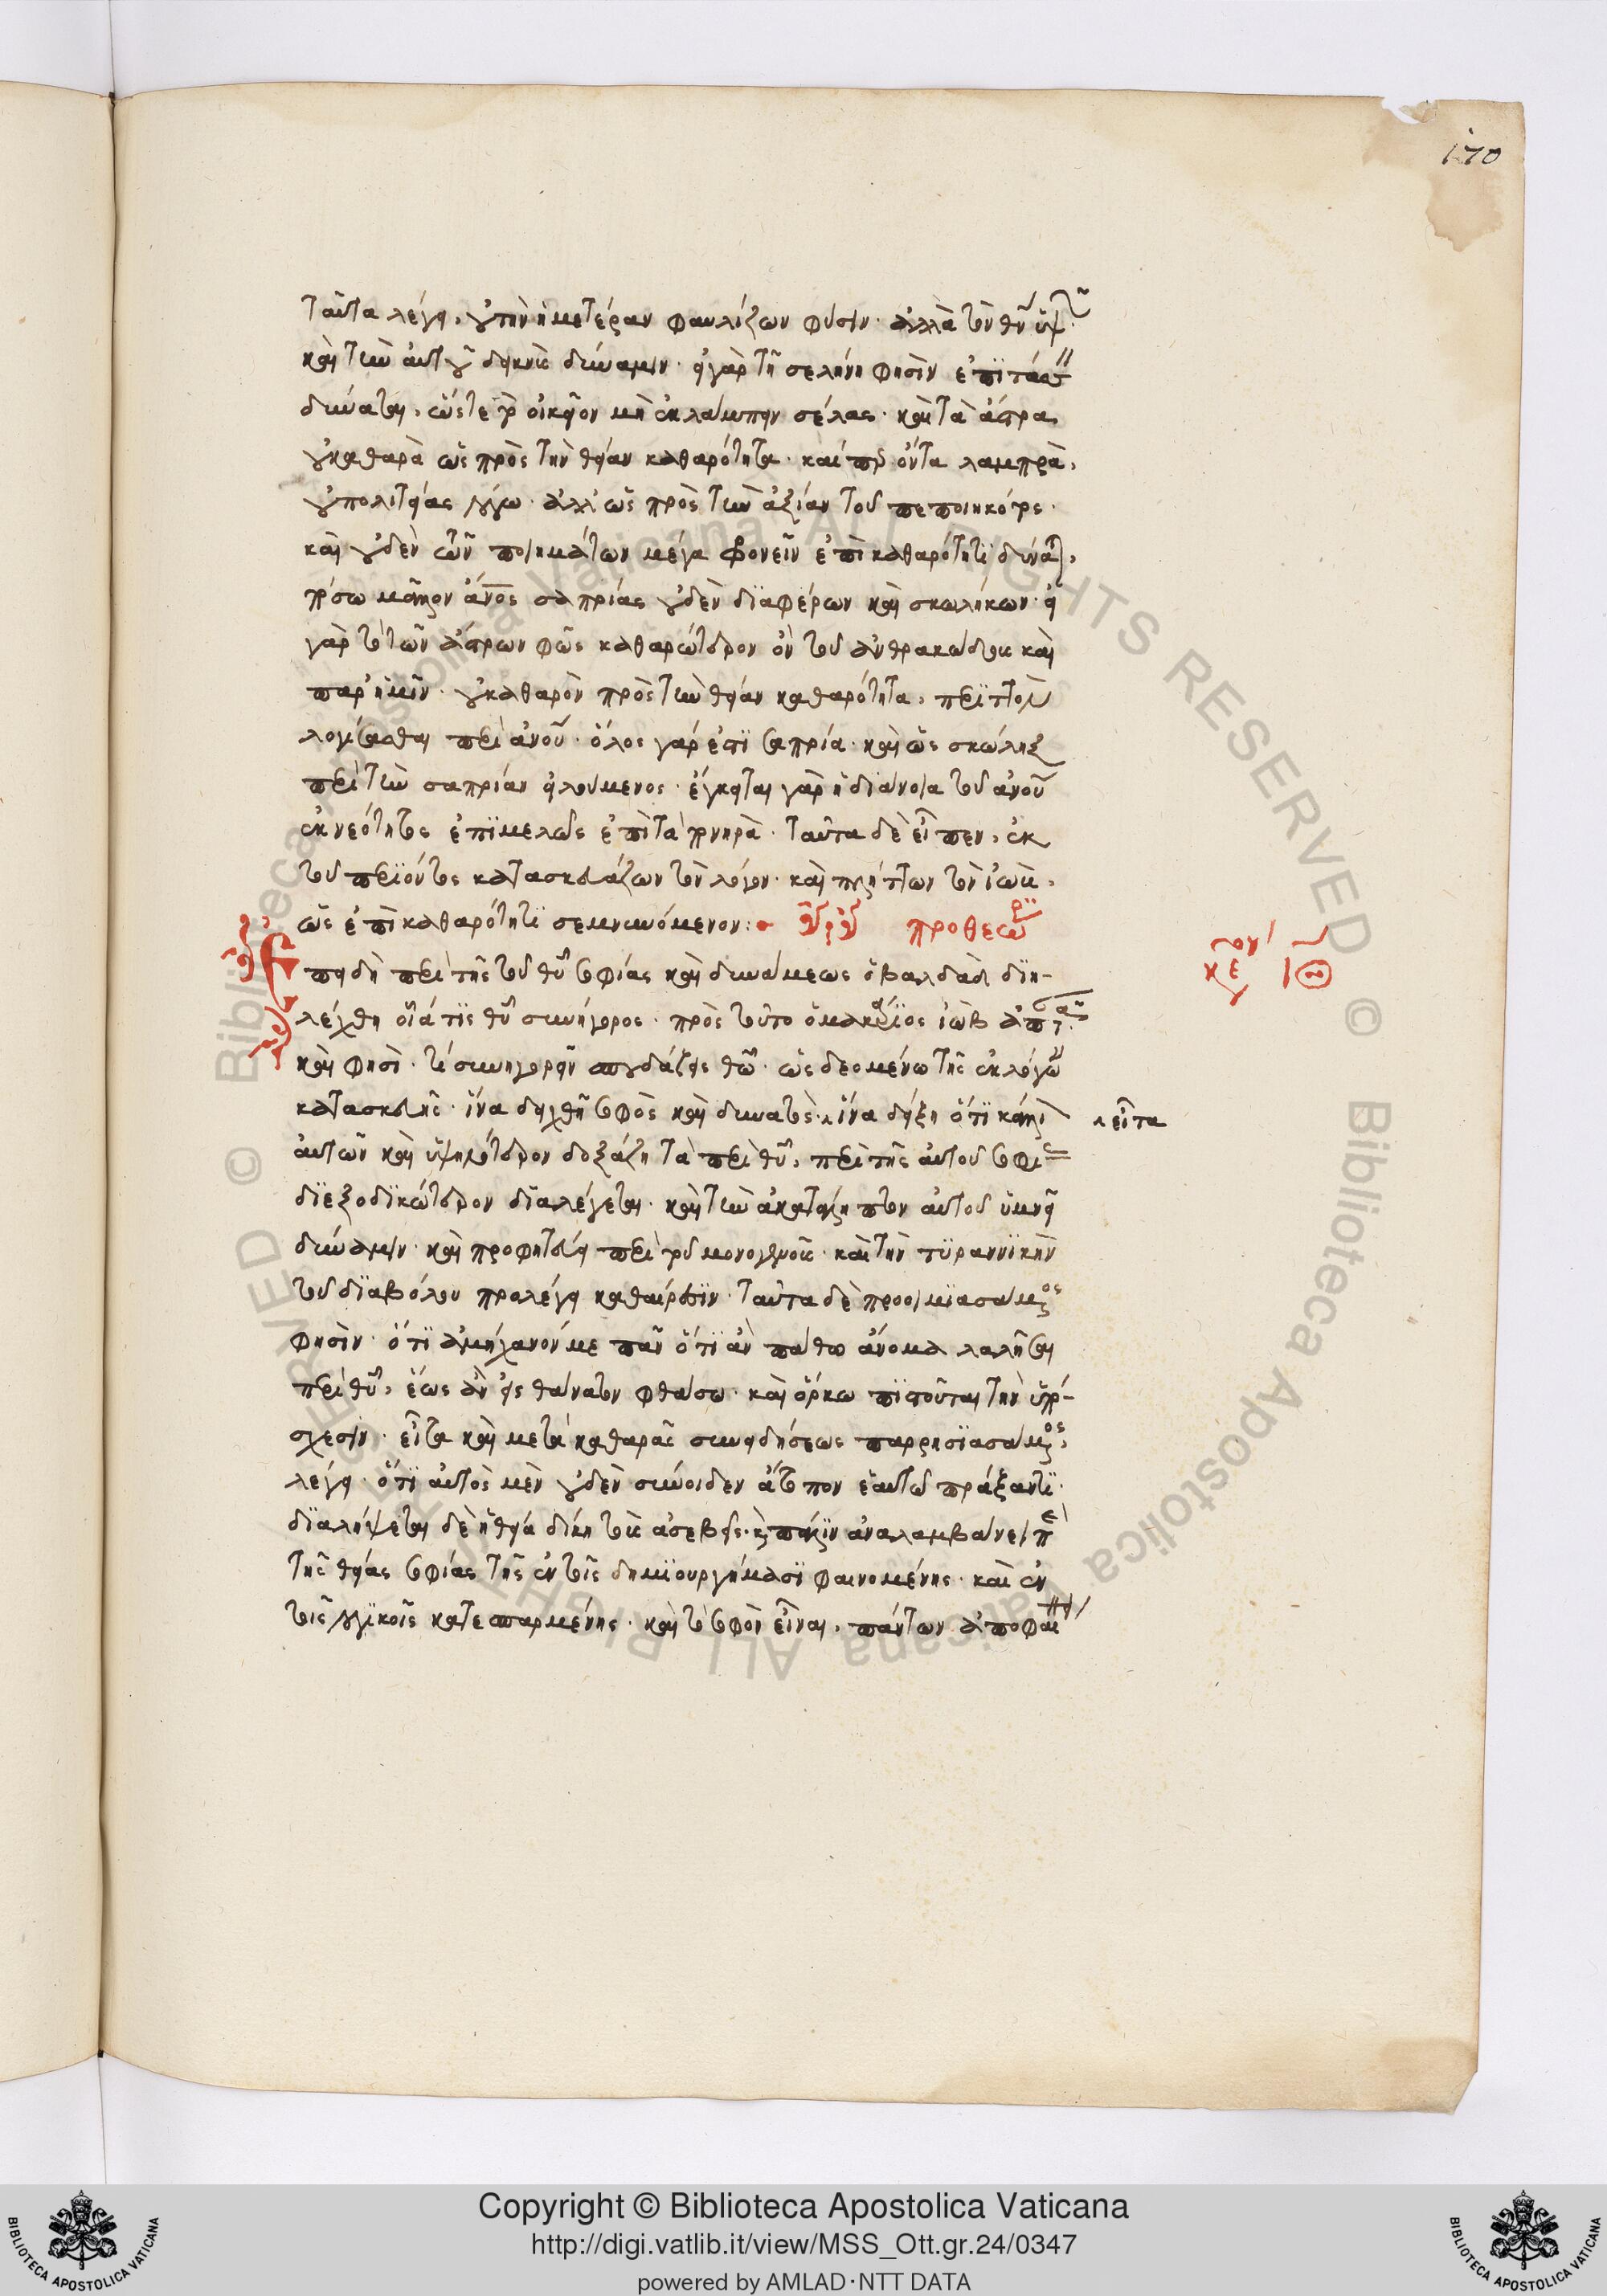 170
ταῦτα λέγει, οὐ τὴν ἡμετέραν φαυλίζων φύσιν· ἀλλὰ τὸν θν ὑψῶν
καὶ τὴν αὐτοῦ δεικνὺς δύναμιν· εἰ γὰρ τῇ σελήνῃ φησὶν ἐπιτάσσειν
δύναται, ὥστε τὸ οἰκεῖον μὴ ἐκλάμπειν σέλας· καὶ τὰ ἄστρα
οὐ καθαρὰ ὡς πρὸς τὴν θείαν καθαρότητα· καίπερ ὄντα λαμπρὰ,
οὐ πολιτείας λόγω· ἀλλ' ὡς πρὸς τὴν ἀξίαν τοῦ πεποιηκότος·
καὶ οὐδὲν τῶν ποιημάτων μέγα φρονεῖν ἐπὶ καθαρότητι δύναται,
πόσω μᾶλλον ἄνος σαπρίας οὐδὲν διαφέρων καὶ σκωλήκων· εἰ
γὰρ τὸ τῶν ἄστρων φῶς καθαρώτερον ὂν τοῦ ἀνθρακώδους καὶ
παρ' ἡμῖν· οὐ καθαρὸν πρὸς τὴν θείαν καθαρότητα, περιττὸν
λογίσασθαι περὶ ἀνοῦ· ὅλος γάρ ἐστι σαπρία· καὶ ὡς σκώληξ
περὶ τὴν σαπρίαν εἰλούμενος· ἔγκειται γὰρ ἡ διάνοια τοῦ ἀνοῦ
ἐκ νεότητος ἐπιμελῶς ἐπὶ τὰ πονηρὰ· ταῦτα δὲ εἶπεν, ἐκ
τοῦ περιόντος κατασκευάζων τὸν λόγον· καὶ πλήττων τὸν ἰὼβ,
ὡς ἐπὶ καθαρότητι σεμνυνόμενον: προθεωρί
πειδὴ περὶ τῆς τοῦ θυ σοφίας καὶ δυνάμεως ὁ βαλδὰδ διη-
λέχθη οἷά τις θυ συνήγορος· πρὸς τοῦτο ὁ μακάριος ἰὼβ
καὶ φησὶ· τί συνηγορεῖν σπουδάζεις θω· ὡς δεομένω τῆς ἐκ λόγων
κατασκευῆς· ἵνα δειχθῇ σοφὸς καὶ δυνατὸς· ἵνα δείξῃ ὅτι κάλλι
εἶτα
αὐτῶν καὶ ὑψηλότερον δοξάζει τὰ περὶ θυ, περὶ τῆς αὐτοῦ σοφίας
διεξοδικώτερον διαλέγεται· καὶ τὴν ἀκατάληπτον αὐτοῦ ὑμνεῖ
δύναμιν· καὶ προφητεύει περὶ τοῦ μονογενοῦς· καὶ τὴν τυραννικὴν
τοῦ διαβόλου προλέγει καθαίρεσιν· ταῦτα δὲ προοιμιασάμενος
φησὶν· ὅτι ἀμήχανόν με πᾶν ὅτι ἂν πάθω ἄνομα λαλῆσαι
περὶ θυ, ἕως ἂν εἰς θάνατον φθάσω· καὶ ὅρκω πιστοῦται τὴν ὑπό-
σχεσιν· εἶτα καὶ μετὰ καθαρᾶς συνειδήσεως παρρησιασάμενος,
λέγει· ὅτι αὐτὸς μὲν οὐδὲν σύνοιδεν ἄτοπον ἑαυτῶ πράξαντι·
διαλήψεται δὲ ἡ θεία δίκη τοὺς ἀσεβεῖς· καὶ πάλιν ἀναλαμβάνει περὶ
τῆς θείας σοφίας τῆς ἐν τοῖς δημιουργήμασι φαινομένης· καὶ ἐν
τοῖς λογικοῖς κατεσπαρμένης· καὶ τὸ σοφὸν εἶναι, πάντων ἀποφαί
Copyright © Biblioteca Apostolica Vaticana
http://digi.vatlib.it/view/MSS_Ott.gr.24/0347
powered by AMLAD·NTT DATA